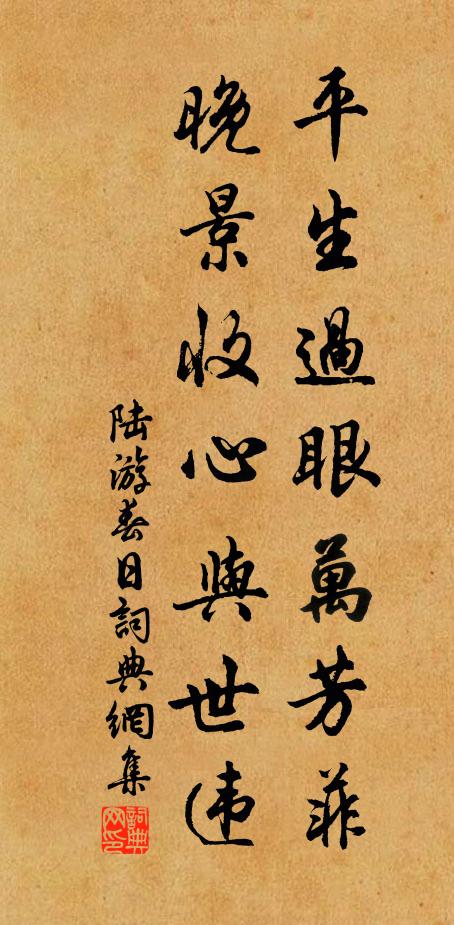 平生過眼萬芳菲
晚景收心與世违
陆游春日詞典網集
詞典网印